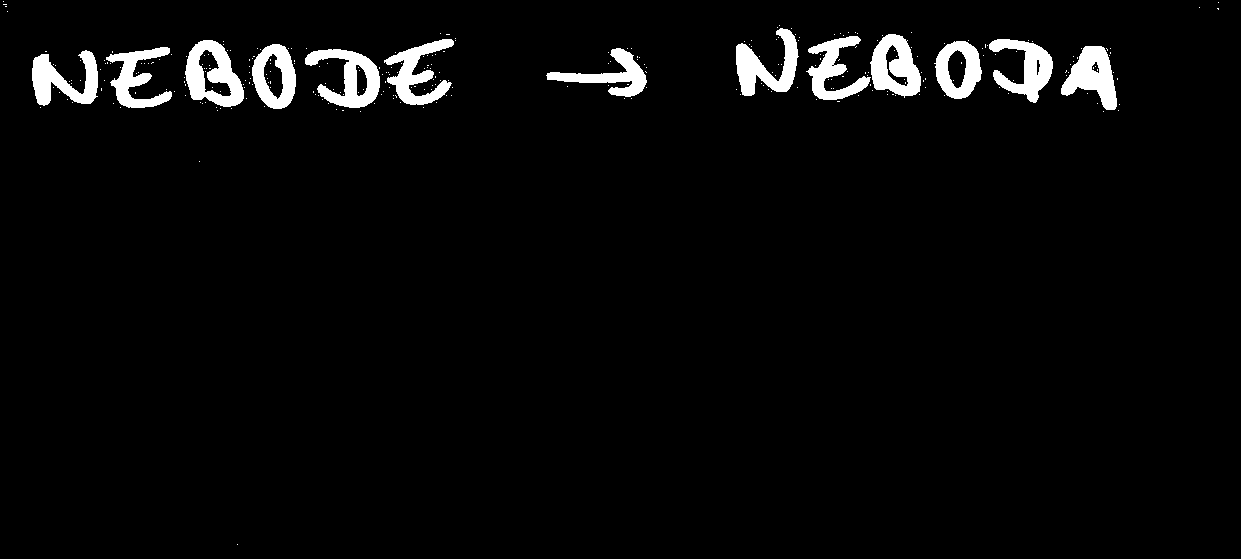 NEBODE → NEBODA